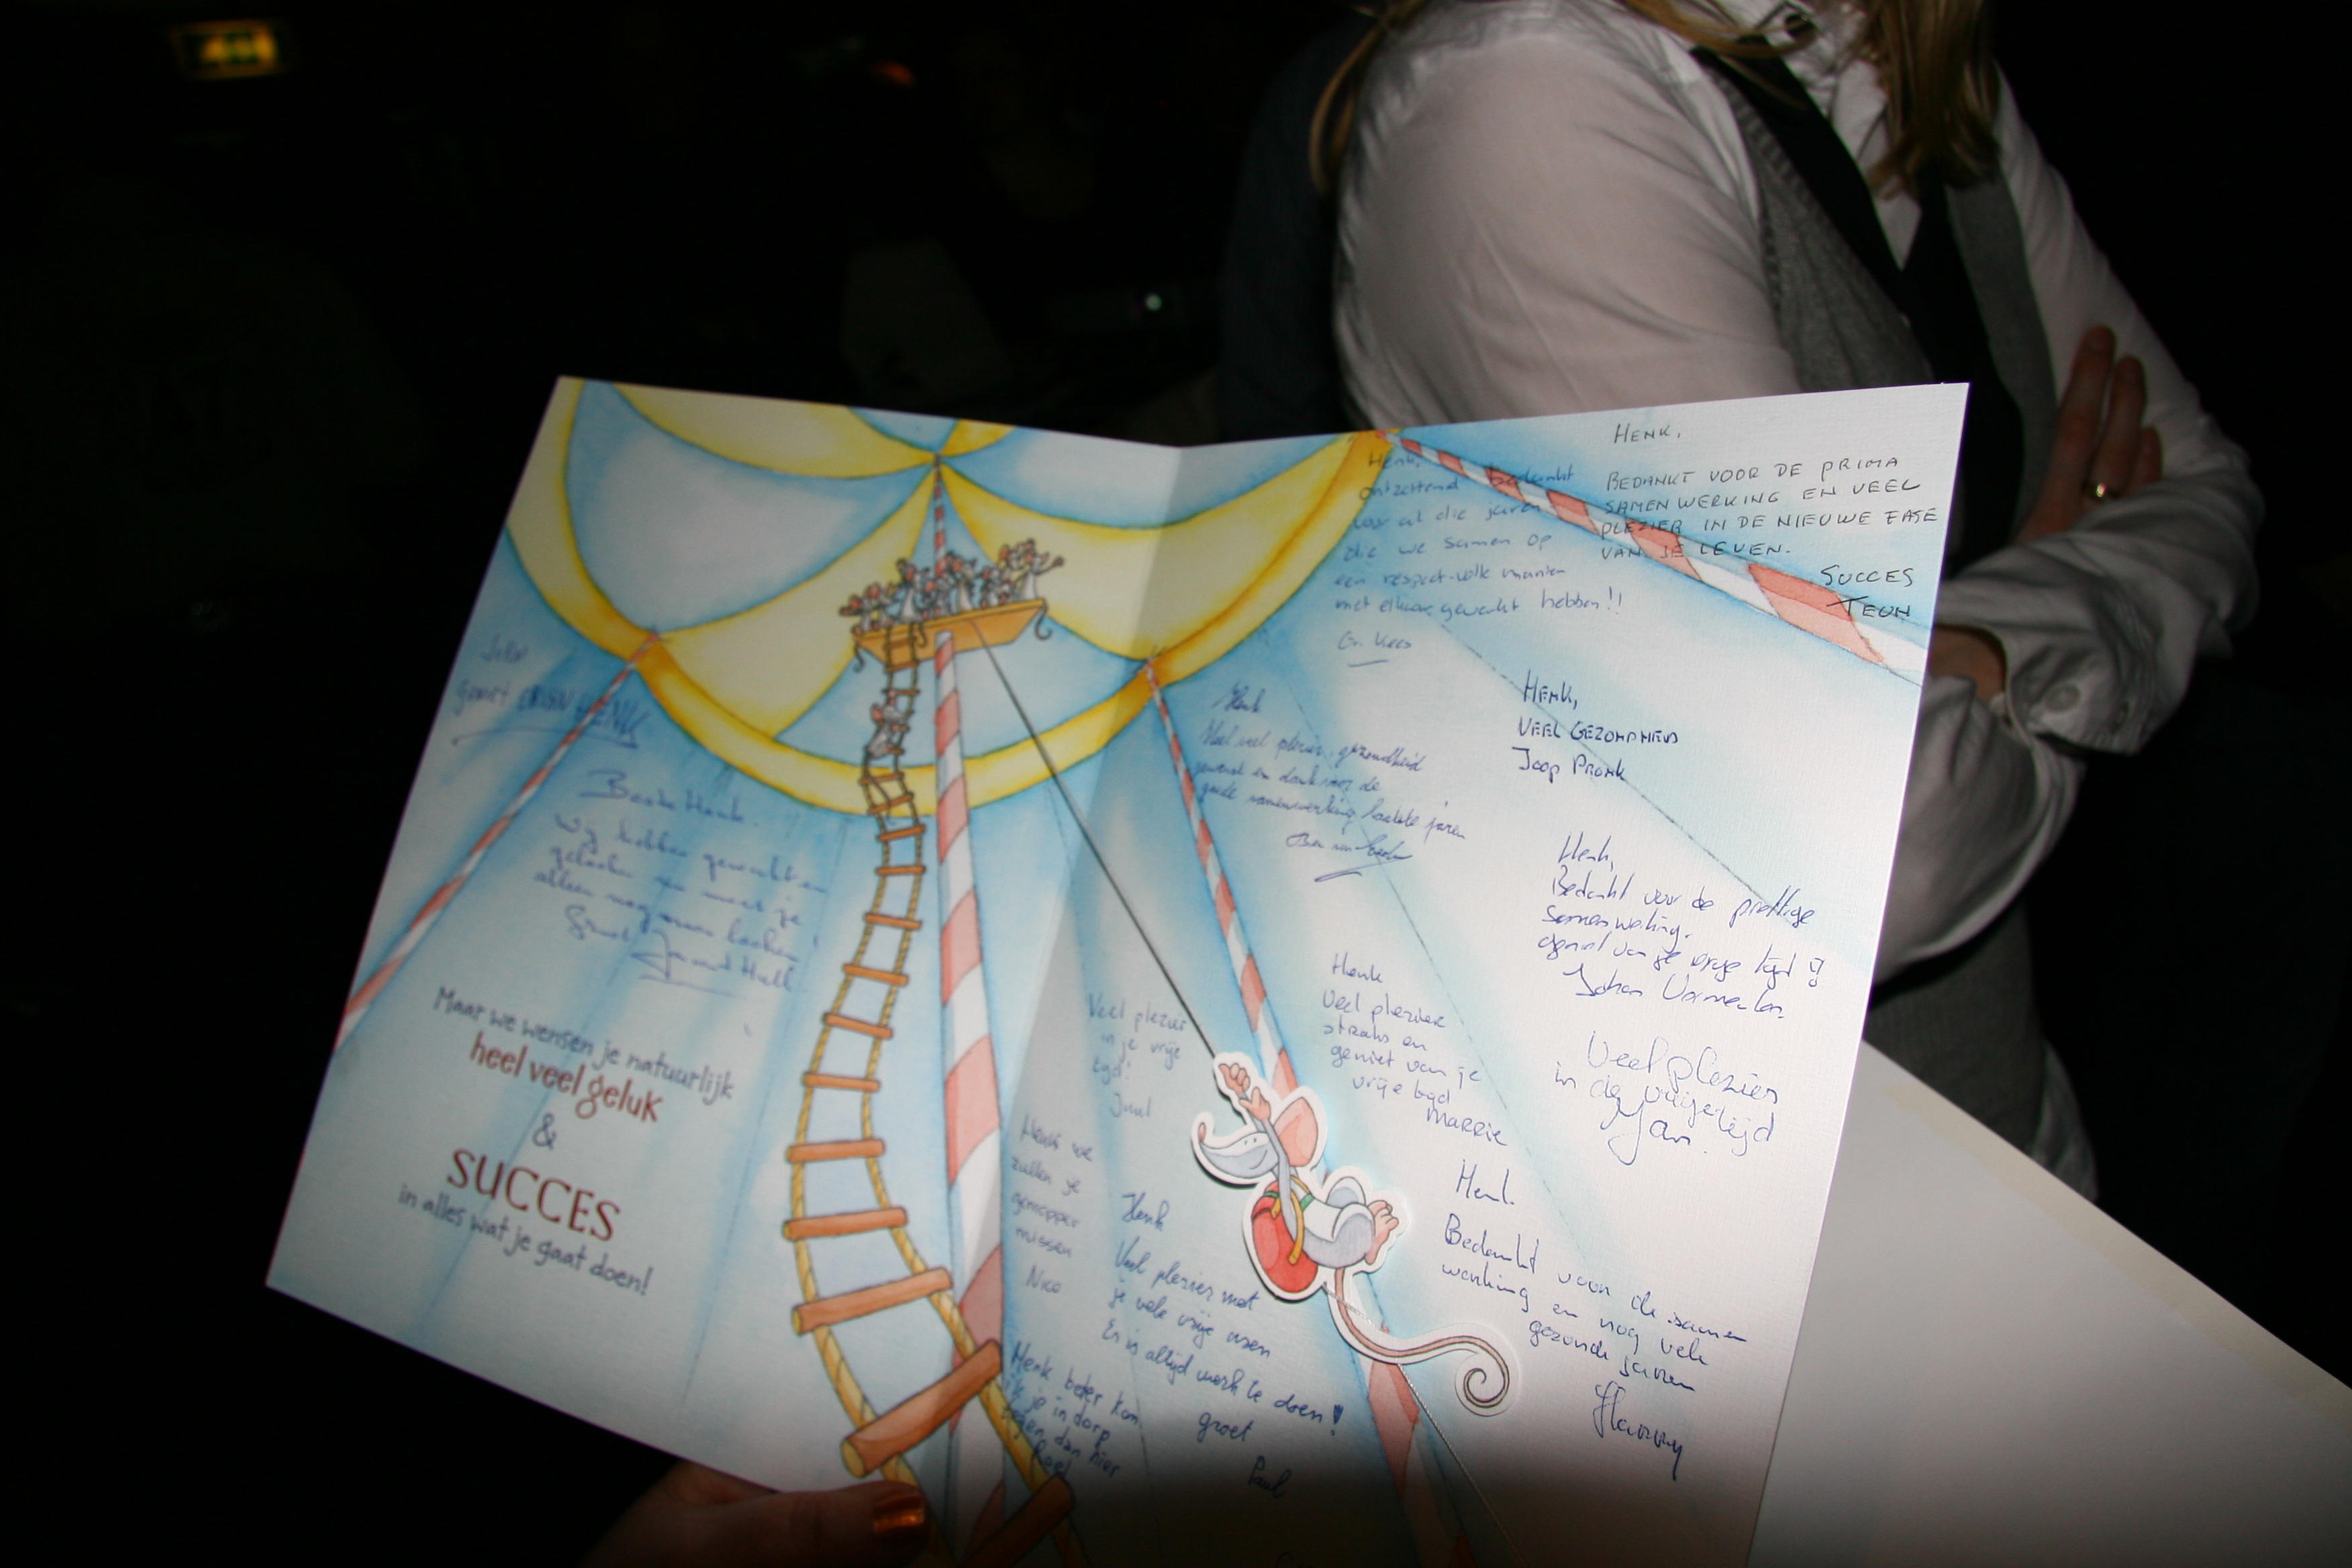 geniet
Beste Henk.
Wij hebben gewerkt en
gelachen nu moet je
alleen nog maar lachen!
Maar we wensen je natuurlijk
heel veel geluk
&
SUCCES
in alles wat je gaat doen!
Henk,
ontzettend bedankt
voor al die jaren
die we samen op
een respect-volle manier
met elkaar gewerkt hebben!!
Gr. Kees
HENK,
BEDANKT VOOR DE PRIMA
SAMENWERKING EN VEEL
PLEZIER IN DE NIEUWE FASE
VAN JE LEVEN.
SUCCES
TEUN
Henk
Heel veel plezier, gezondheid
gewenst en dank voor de
goede samenwerking laatste jaren
HENK,
VEEL GEZONDHEID
Joop Pronk
Henk,
Bedankt voor de prettige
samenwerking.
geniet van je vrije tijd !!
Johan Vermeulen
Henk
Veel plezier
straks en
geniet van je
vrije tijd
Marrie
Veel plezier
in de vrije tijd
Jan.
Veel plezier
in je vrije
tijd!
Juul
Henk we
zullen je
missen
Nico
Henk
Veel plezier met
je vele vrije uren
Er is altijd werk te doen!
groet
Paul
Henk beter kon
ik je in dorp
tegen dan hier
Roel
Henk.
Bedankt voor de samen
werking en nog vele
gezonde jaren
Harry